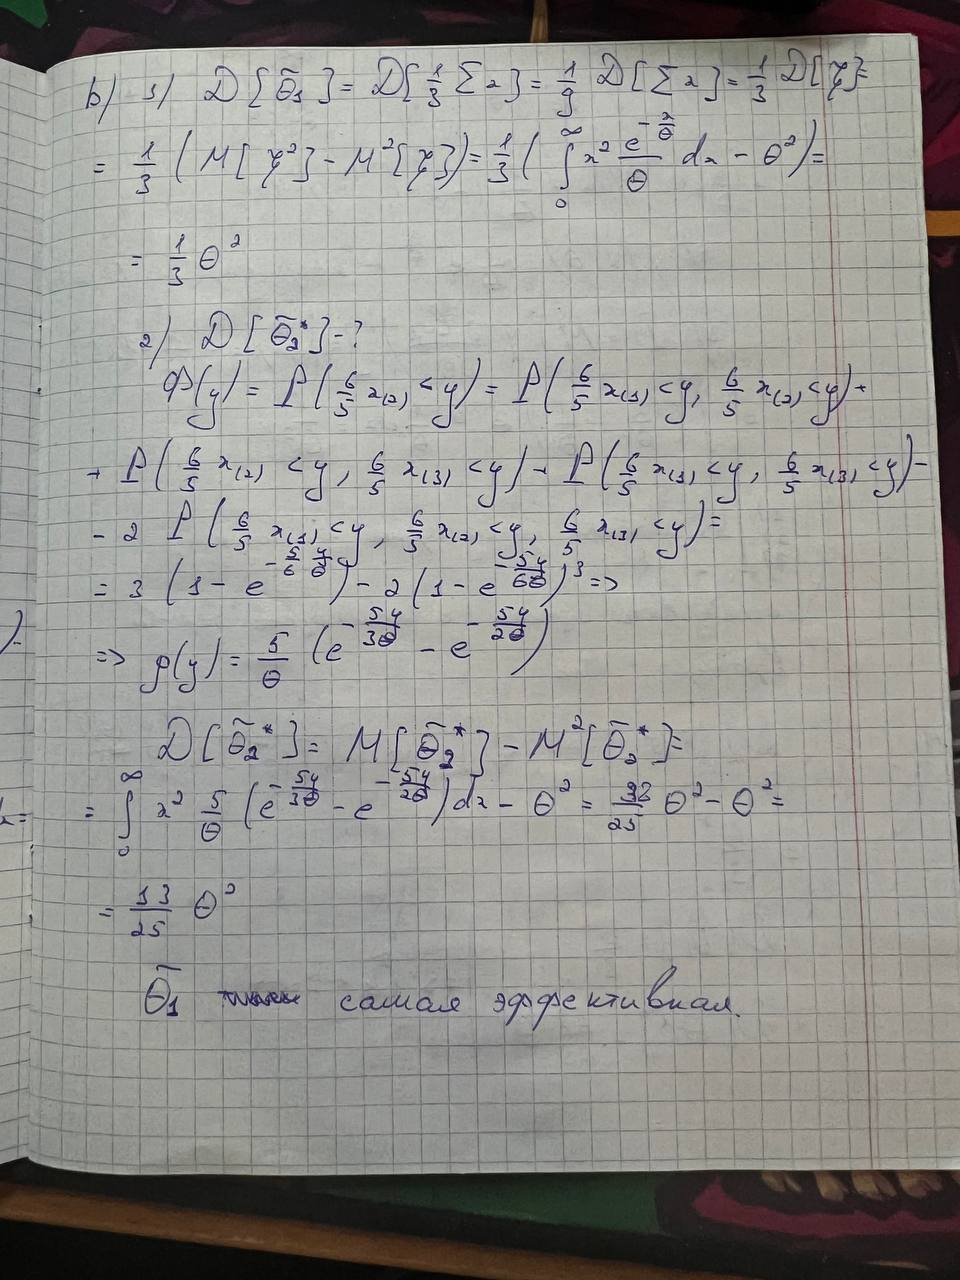 b) 1) D[θ̃₁] = D[1/3 Σx] = 1/9 D[Σx] = 1/3 D[ξ] =
= 1/3 (M[ξ²] - M²[ξ]) = 1/3 (∫₀^∞ x² e^(-x/θ)/θ dx - θ²) =
= 1/3 θ²
2) D[θ̃₂*] - ?
Φ(y) = P(6/5 x₍₂₎ < y) = P(6/5 x₍₁₎ < y, 6/5 x₍₂₎ < y) +
+ P(6/5 x₍₂₎ < y, 6/5 x₍₃₎ < y) + P(6/5 x₍₁₎ < y, 6/5 x₍₃₎ < y) -
- 2 P(6/5 x₍₁₎ < y, 6/5 x₍₂₎ < y, 6/5 x₍₃₎ < y) =
= 3 (1 - e^(-5/6 y/θ)) - 2 (1 - e^(-5y/6θ))³ =>
=> p(y) = 5/θ (e^(-5y/3θ) - e^(-5y/2θ))
D[θ̃₂*] = M[θ̃₂*] - M²[θ̃₂*] =
= ∫₀^∞ x² 5/θ (e^(-5y/3θ) - e^(-5y/2θ)) dx - θ² = 38/25 θ² - θ² =
= 13/25 θ²
θ̃₁ самая эффективная.